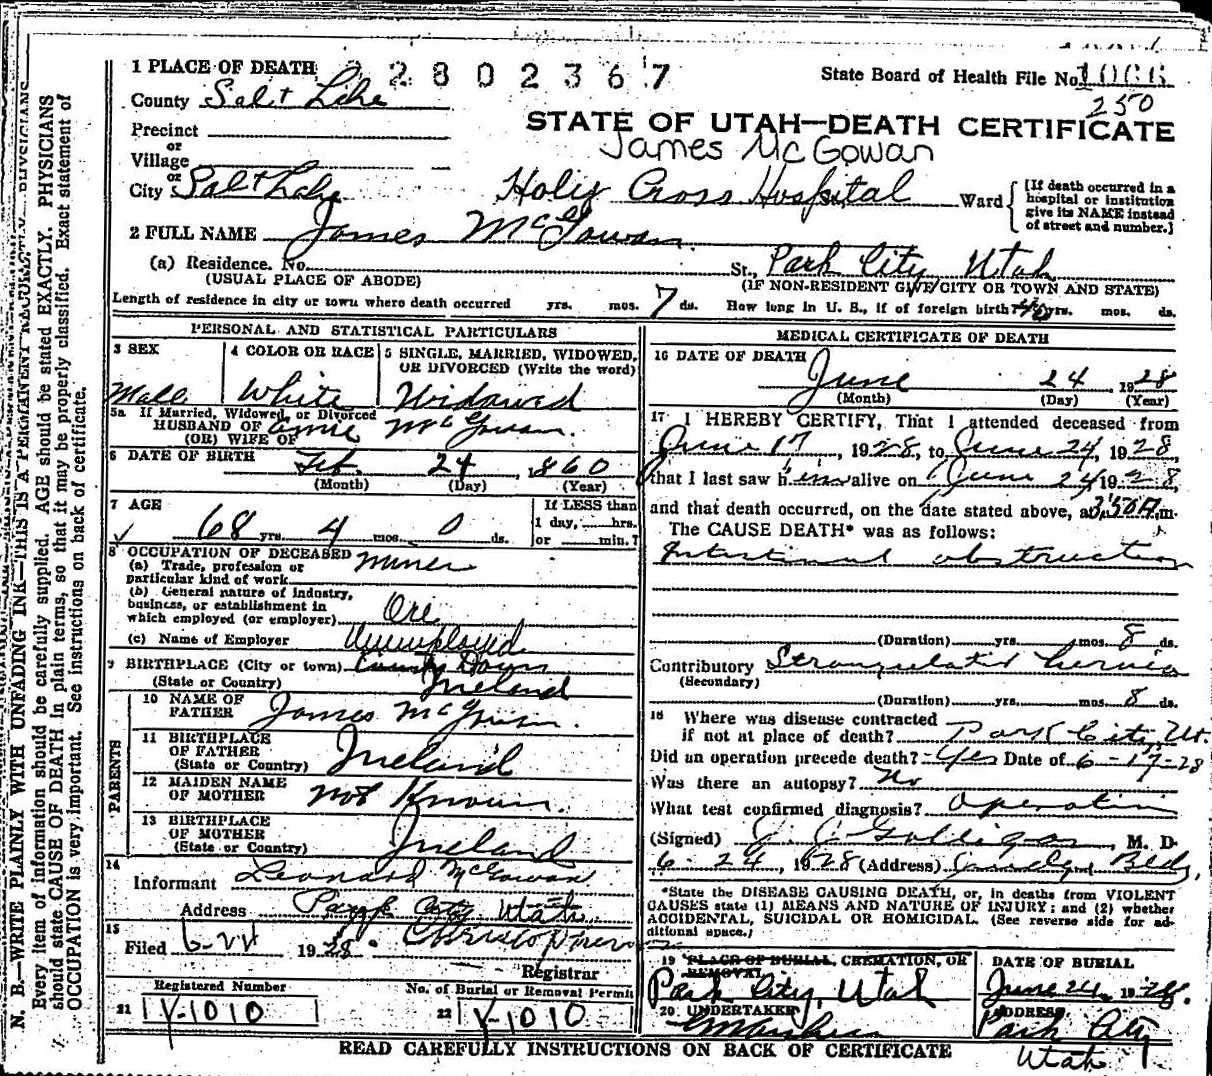 1 PLACE OF DEATH 2 2 8 0 2 3 6 7
State Board of Health File No. 1066
250
County Salt Lake
STATE OF UTAH—DEATH CERTIFICATE
Precinct
James McGowan
or
Village
or
City Salt Lake Holy Cross Hospital Ward
[If death occurred in a hospital or institution give its NAME instead of street and number.]
2 FULL NAME James McGowan
(a) Residence. No. St., Park City Utah
(USUAL PLACE OF ABODE) (IF NON-RESIDENT GIVE CITY OR TOWN AND STATE)
Length of residence in city or town where death occurred yrs. mos. 7 ds. How long in U. S., if of foreign birth? yrs. mos. ds.
PERSONAL AND STATISTICAL PARTICULARS
3 SEX 4 COLOR OR RACE 5 SINGLE, MARRIED, WIDOWED, OR DIVORCED (Write the word)
Male White Widowed
5a If Married, Widowed, or Divorced
HUSBAND OF McGowan
(OR) WIFE OF
6 DATE OF BIRTH Feb 24 1860
(Month) (Day) (Year)
7 AGE If LESS than
68 yrs. 4 mos. 0 ds. 1 day, hrs.
or min.?
8 OCCUPATION OF DECEASED
(a) Trade, profession or particular kind of work Miner
(b) General nature of industry, business, or establishment in which employed (or employer) Ore
(c) Name of Employer Unemployed
9 BIRTHPLACE (City or town) County Down
(State or Country) Ireland
PARENTS
10 NAME OF FATHER James McGowan
11 BIRTHPLACE OF FATHER (State or Country) Ireland
12 MAIDEN NAME OF MOTHER not Known
13 BIRTHPLACE OF MOTHER (State or Country) Ireland
14
Informant Leonard McGowan
Address Park City Utah
15
Filed 1928
Registrar
Registered Number No. of Burial or Removal Permit
21 V-1010 22 V-1010
MEDICAL CERTIFICATE OF DEATH
16 DATE OF DEATH
June 24, 1928
(Month) (Day) (Year)
17 I HEREBY CERTIFY, That I attended deceased from
June 17, 1928, to June 24, 1928,
that I last saw him alive on June 24, 1928,
and that death occurred, on the date stated above, at 3:50 A.m.
The CAUSE DEATH* was as follows:
Intestinal obstruction
(Duration) yrs. mos. 8 ds.
Contributory Strangulated hernia
(Secondary)
(Duration) yrs. mos. 8 ds.
18 Where was disease contracted
if not at place of death? Park City, Ut.
Did an operation precede death? Yes Date of 6-17-28
Was there an autopsy? No
What test confirmed diagnosis? Operation
(Signed) J. J. Galligan, M. D.
6-24, 1928 (Address) Bldg,
*State the DISEASE CAUSING DEATH, or, in deaths from VIOLENT
CAUSES state (1) MEANS AND NATURE OF INJURY; and (2) whether
ACCIDENTAL, SUICIDAL OR HOMICIDAL. (See reverse side for ad-
ditional space.)
19 PLACE OF BURIAL, CREMATION, OR REMOVAL DATE OF BURIAL
Park City, Utah June 24, 1928.
20 UNDERTAKER ADDRESS
Park City
Utah
READ CAREFULLY INSTRUCTIONS ON BACK OF CERTIFICATE
N. B.—WRITE PLAINLY WITH UNFADING INK—THIS IS A PERMANENT RECORD.
Every item of information should be carefully supplied. AGE should be stated EXACTLY. PHYSICIANS
should state CAUSE OF DEATH in plain terms, so that it may be properly classified. Exact statement of
OCCUPATION is very important. See instructions on back of certificate.